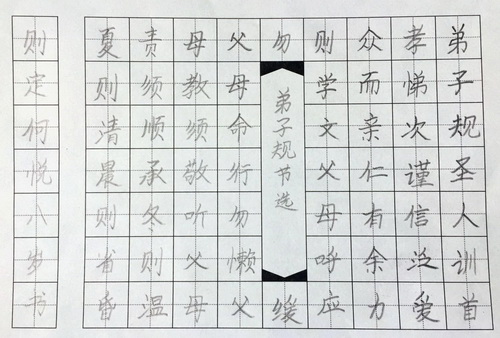 弟子规圣人训首
孝悌次谨信泛爱
众而亲仁有余力
则学文父母呼应
勿缓
弟子规节选
父母命行勿懒父
母教须敬听父母
责须顺承冬则温
夏则清晨则省昏
则定何悦八岁书